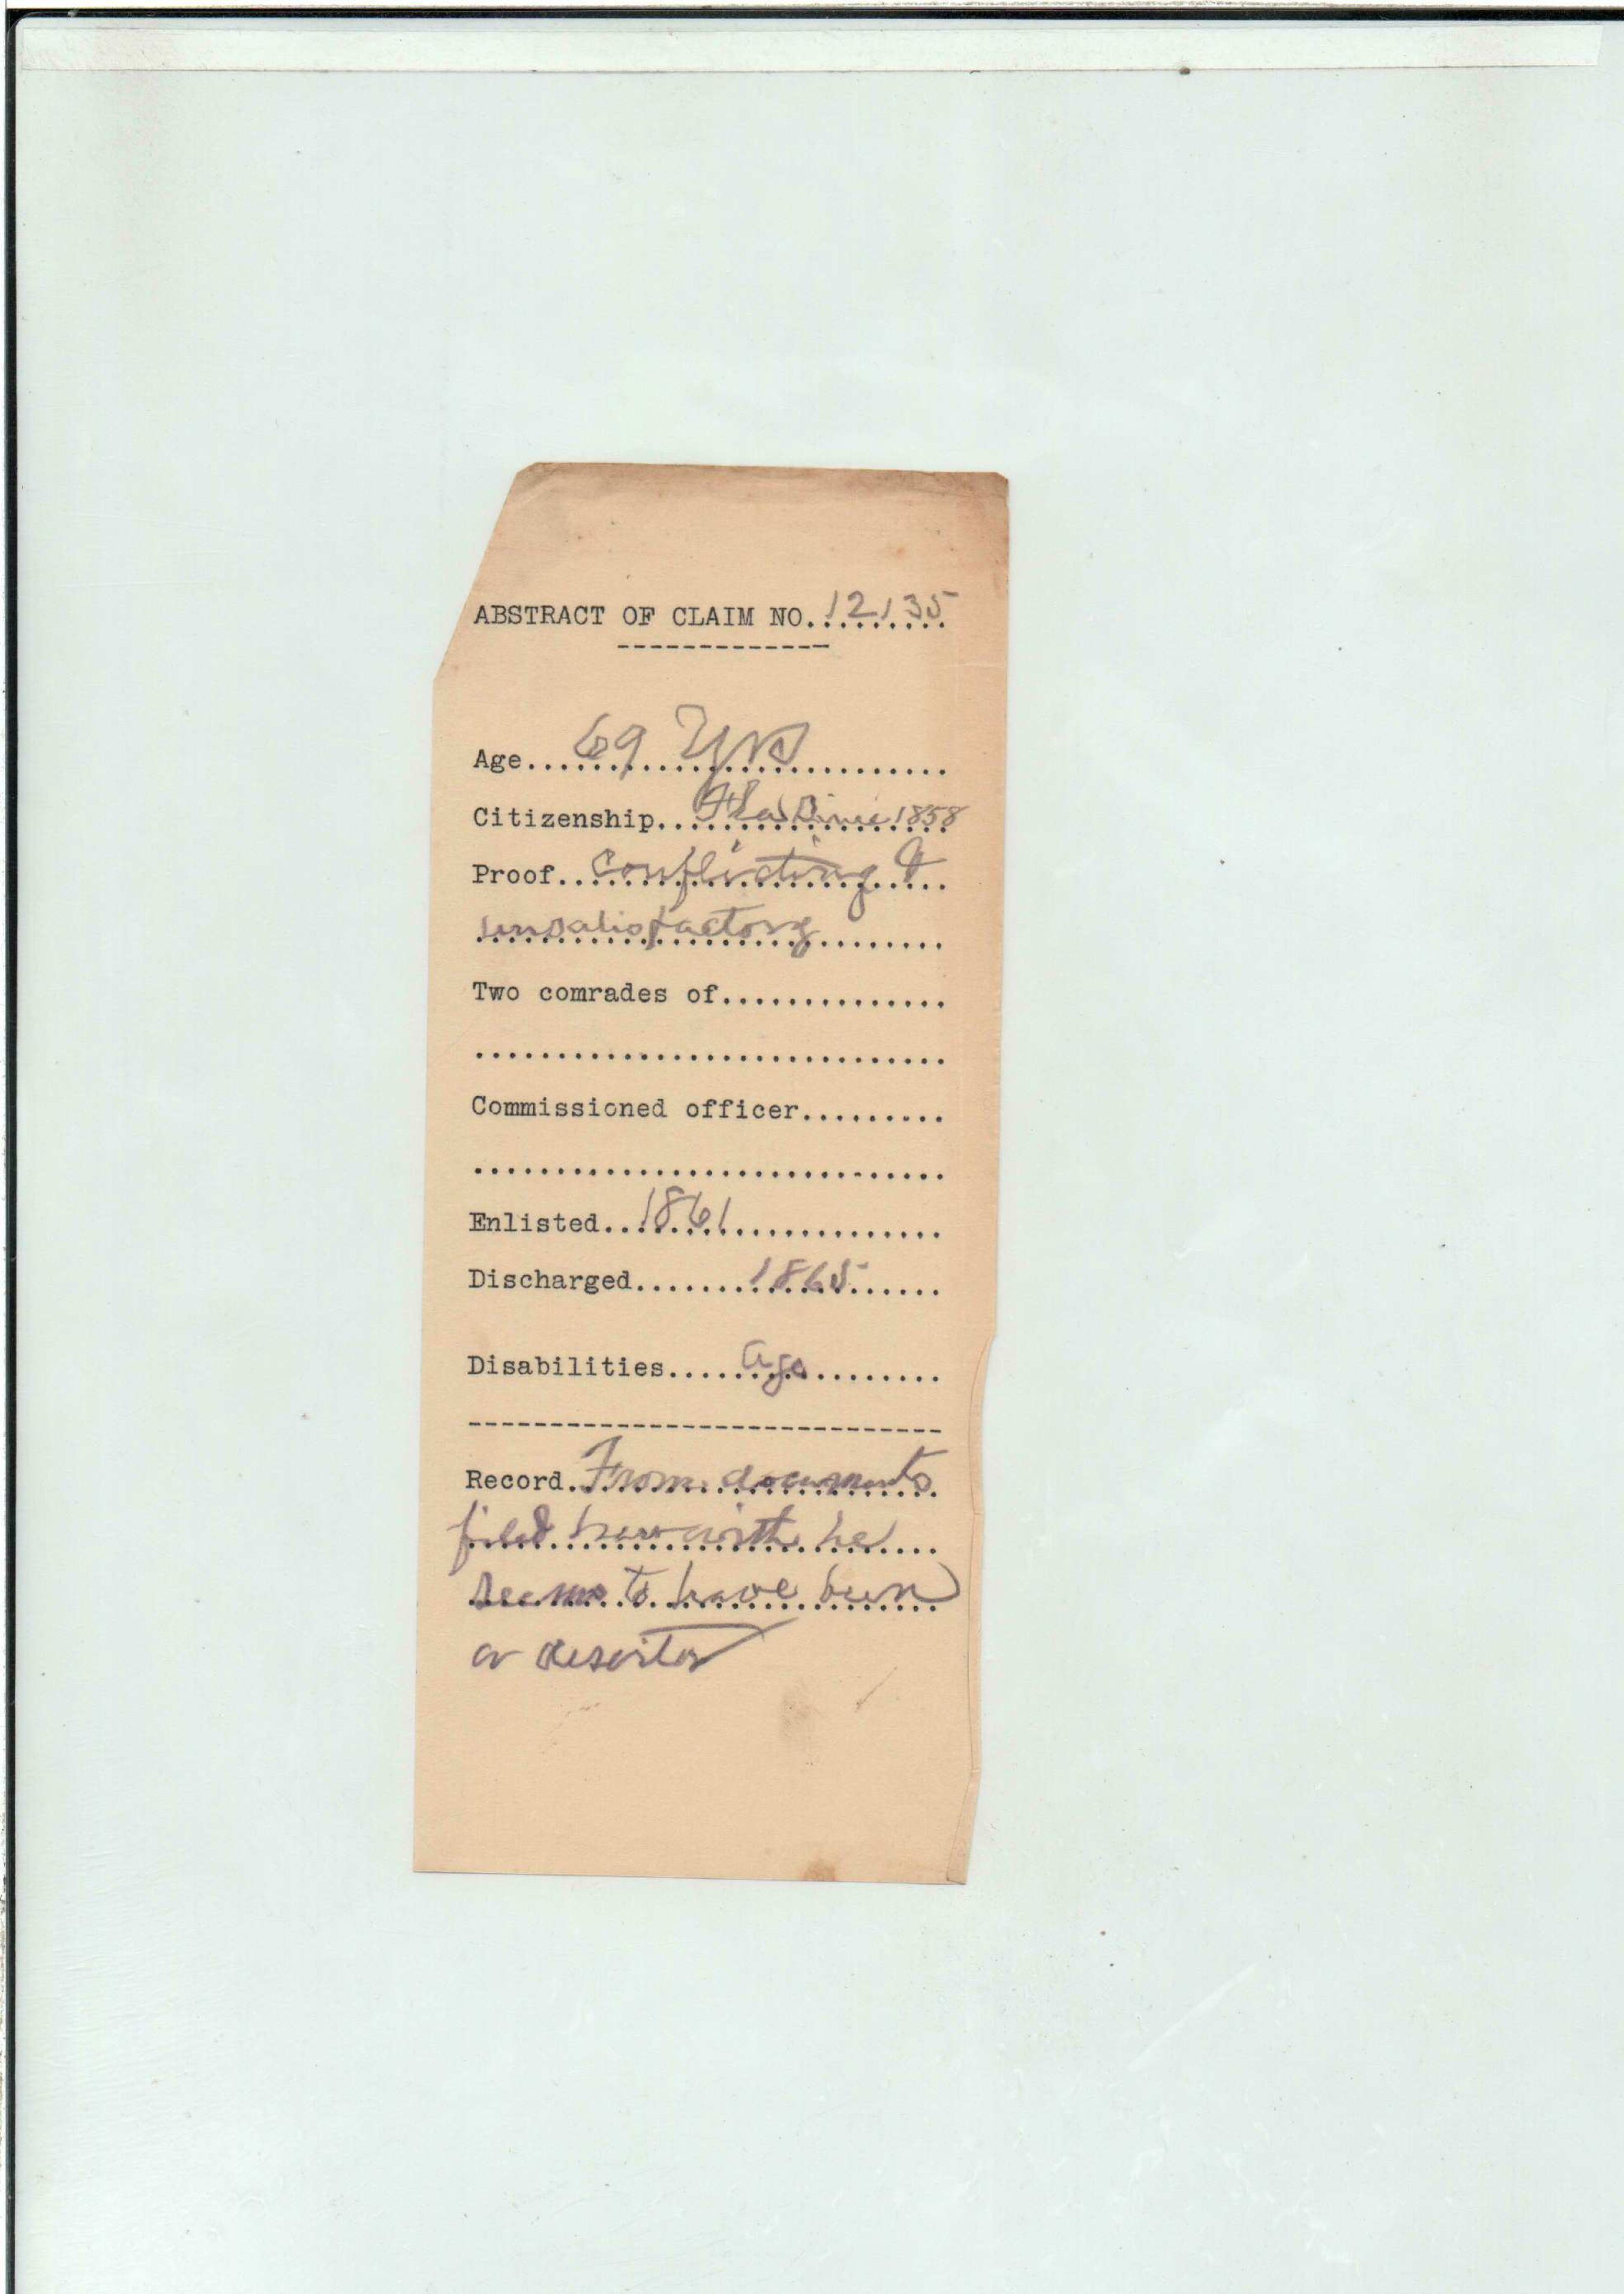 ABSTRACT OF CLAIM NO. 12135
Age 69 Yrs
Citizenship Fla Since 1858
Proof Conflicting &
unsatisfactory
Two comrades of
Commissioned officer
Enlisted 1861
Discharged 1865
Disabilities age
Record From documents
filed herewith he
seems to have been
a deserter